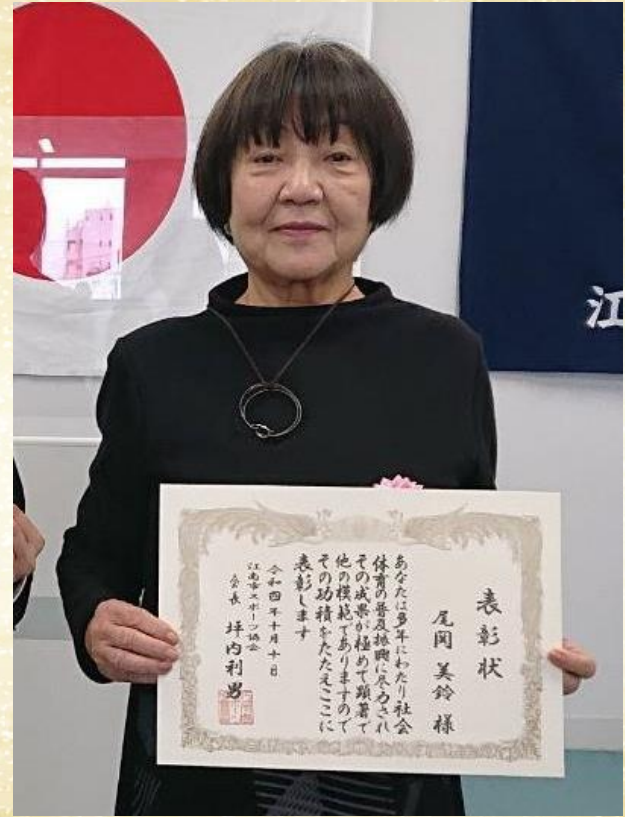 江
表彰状
尾関 美鈴 様
あなたは多年にわたり社会
体育の普及振興に尽力され
その成果が極めて顕著で
他の模範でありますので
その功績をたたえここに
表彰します
令和四年十月十日
江南市スポーツ協会
会長 坪内利男